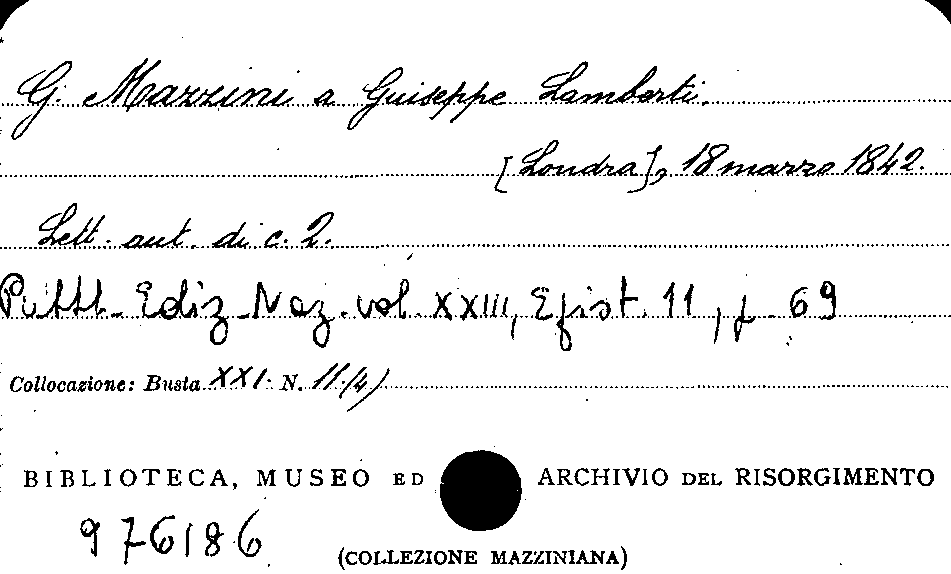 G. Mazzini a Guiseppe Lamberti.
[Londra], 18 marzo 1842.
Lett. aut. di c. 2.
Pubbl. Ediz. Naz. vol. XXIII, Epist. 11, p. 69
Collocazione: Busta XXI. N. 11(4)
BIBLIOTECA, MUSEO ED ARCHIVIO DEL RISORGIMENTO
976186
(COLLEZIONE MAZZINIANA)